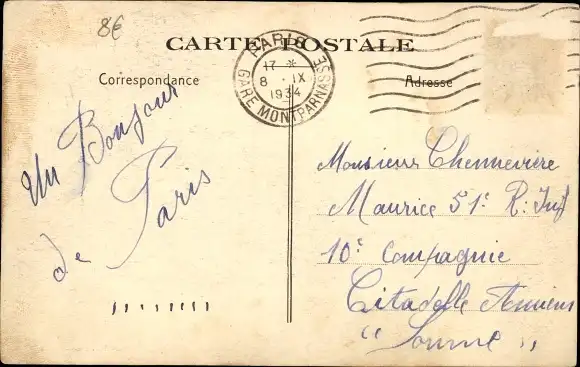 8€
CARTE POSTALE
Correspondance
Adresse
PARIS
17 *
8 · IX
1934
GARE MONTPARNASSE
Un Bonjour
de Paris
Monsieur Chennevière
Maurice 51e R: Inf
10e Compagnie
Citadelle Amiens
"Somme"